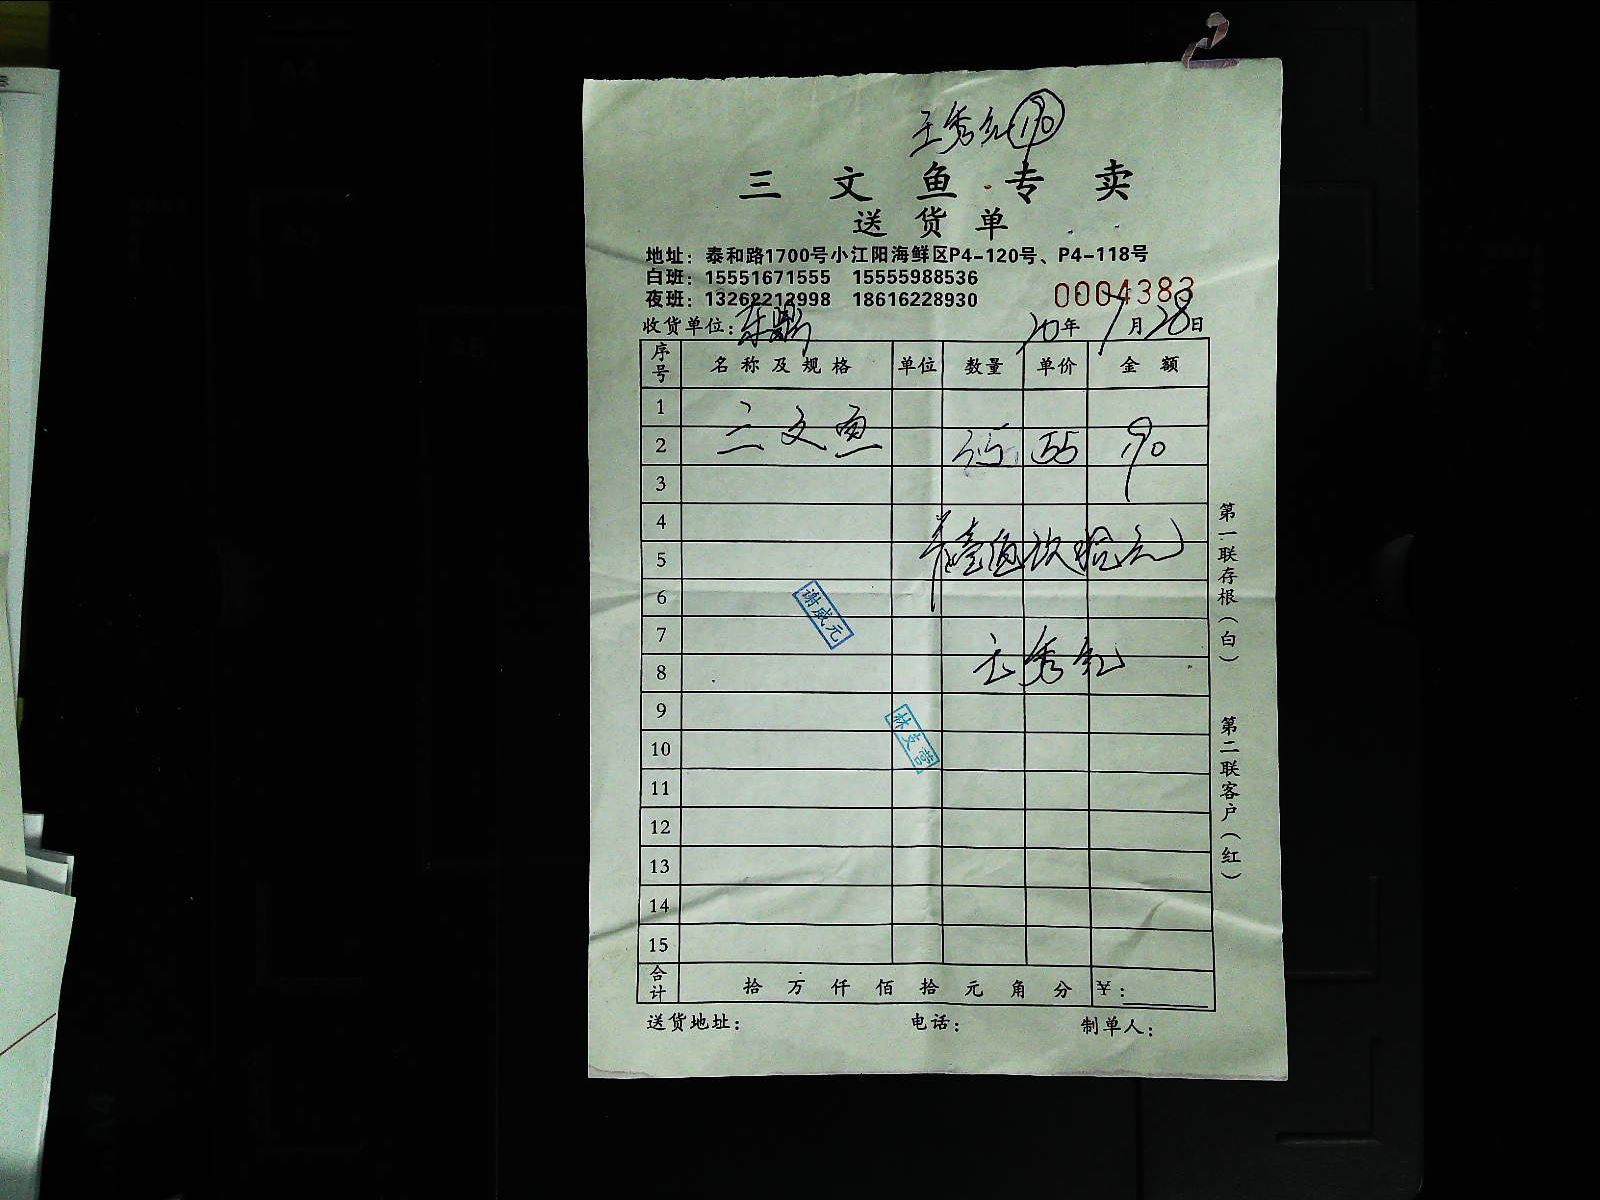 王秀红 190
三文鱼专卖
送货单
地址：泰和路1700号小江阳海鲜区P4-120号、P4-118号
白班：15551671555 15555988536
夜班：13262212998 18616228930
0004383
收货单位：东鼎 20年7月28日
序号 名称及规格 单位 数量 单价 金额
1
2 三文鱼 55 190
3
4
5 壹佰玖拾元
6
谢威元
7
王秀红
8
9
林支营
10
11
12
13
14
15
合计 拾万仟佰拾元角分 ￥：
送货地址： 电话： 制单人：
第一联存根（白） 第二联客户（红）